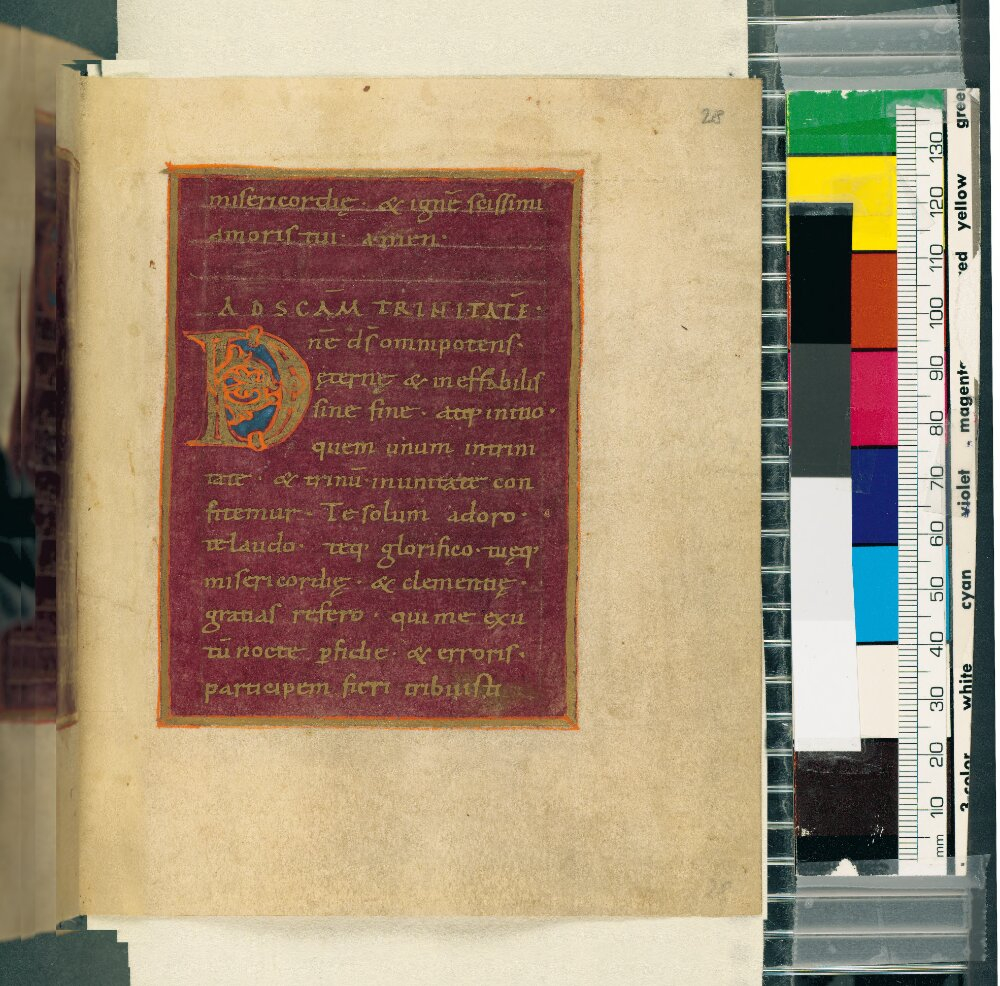 28
misericordię · & igne scissimi
amoris tui · amen ·
AD SCAM TRINITATE :
Dne ds omnipotens ·
ęternę & ineffabilis
sine fine · atq initio ·
quem unum intrini
tate · & trinū inunitate con
fitemur · Te solum adoro ·
te laudo · teq glorifico · tuęq
misericordię · & clementię ·
gratias refero · qui me exu
tū nocte pfidie · & erroris ·
participem fieri tribuisti
28
mm 10 20 30 40 50 60 70 80 90 100 110 120 130
3-color white cyan violet magenta red yellow green